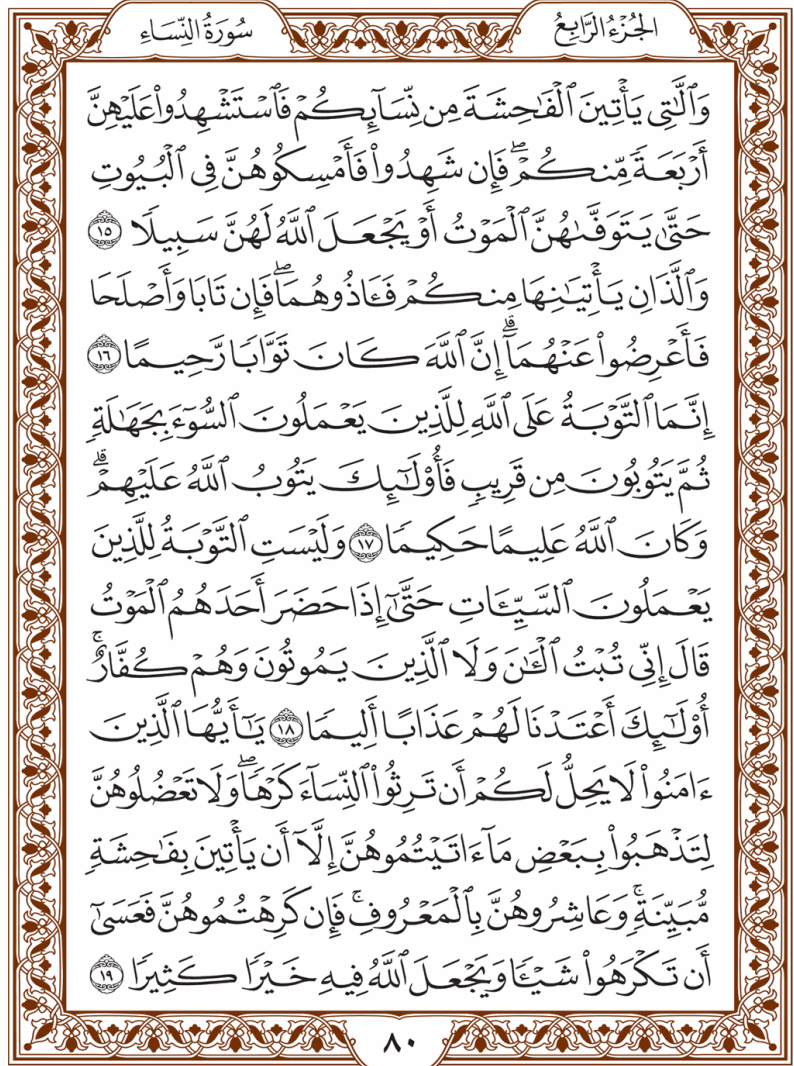 الجُزْءُ الرَّابِعُ
سُورَةُ النِّسَاءِ
وَٱلَّٰتِى يَأۡتِينَ ٱلۡفَٰحِشَةَ مِن نِّسَآئِكُمۡ فَٱسۡتَشۡهِدُواْ عَلَيۡهِنَّ
أَرۡبَعَةٗ مِّنكُمۡۖ فَإِن شَهِدُواْ فَأَمۡسِكُوهُنَّ فِى ٱلۡبُيُوتِ
حَتَّىٰ يَتَوَفَّىٰهُنَّ ٱلۡمَوۡتُ أَوۡ يَجۡعَلَ ٱللَّهُ لَهُنَّ سَبِيلٗا ١٥
وَٱلَّذَانِ يَأۡتِيَٰنِهَا مِنكُمۡ فَـَٔاذُوهُمَاۖ فَإِن تَابَا وَأَصۡلَحَا
فَأَعۡرِضُواْ عَنۡهُمَآۗ إِنَّ ٱللَّهَ كَانَ تَوَّابٗا رَّحِيمًا ١٦
إِنَّمَا ٱلتَّوۡبَةُ عَلَى ٱللَّهِ لِلَّذِينَ يَعۡمَلُونَ ٱلسُّوٓءَ بِجَهَٰلَةٖ
ثُمَّ يَتُوبُونَ مِن قَرِيبٖ فَأُوْلَٰٓئِكَ يَتُوبُ ٱللَّهُ عَلَيۡهِمۡۗ
وَكَانَ ٱللَّهُ عَلِيمًا حَكِيمٗا ١٧ وَلَيۡسَتِ ٱلتَّوۡبَةُ لِلَّذِينَ
يَعۡمَلُونَ ٱلسَّيِّـَٔاتِ حَتَّىٰٓ إِذَا حَضَرَ أَحَدَهُمُ ٱلۡمَوۡتُ
قَالَ إِنِّى تُبۡتُ ٱلۡـَٰٔنَ وَلَا ٱلَّذِينَ يَمُوتُونَ وَهُمۡ كُفَّارٌۚ
أُوْلَٰٓئِكَ أَعۡتَدۡنَا لَهُمۡ عَذَابًا أَلِيمٗا ١٨ يَٰٓأَيُّهَا ٱلَّذِينَ
ءَامَنُواْ لَا يَحِلُّ لَكُمۡ أَن تَرِثُواْ ٱلنِّسَآءَ كَرۡهٗاۖ وَلَا تَعۡضُلُوهُنَّ
لِتَذۡهَبُواْ بِبَعۡضِ مَآ ءَاتَيۡتُمُوهُنَّ إِلَّآ أَن يَأۡتِينَ بِفَٰحِشَةٖ
مُّبَيِّنَةٖۚ وَعَاشِرُوهُنَّ بِٱلۡمَعۡرُوفِۚ فَإِن كَرِهۡتُمُوهُنَّ فَعَسَىٰٓ
أَن تَكۡرَهُواْ شَيۡـٔٗا وَيَجۡعَلَ ٱللَّهُ فِيهِ خَيۡرٗا كَثِيرٗا ١٩
٨٠